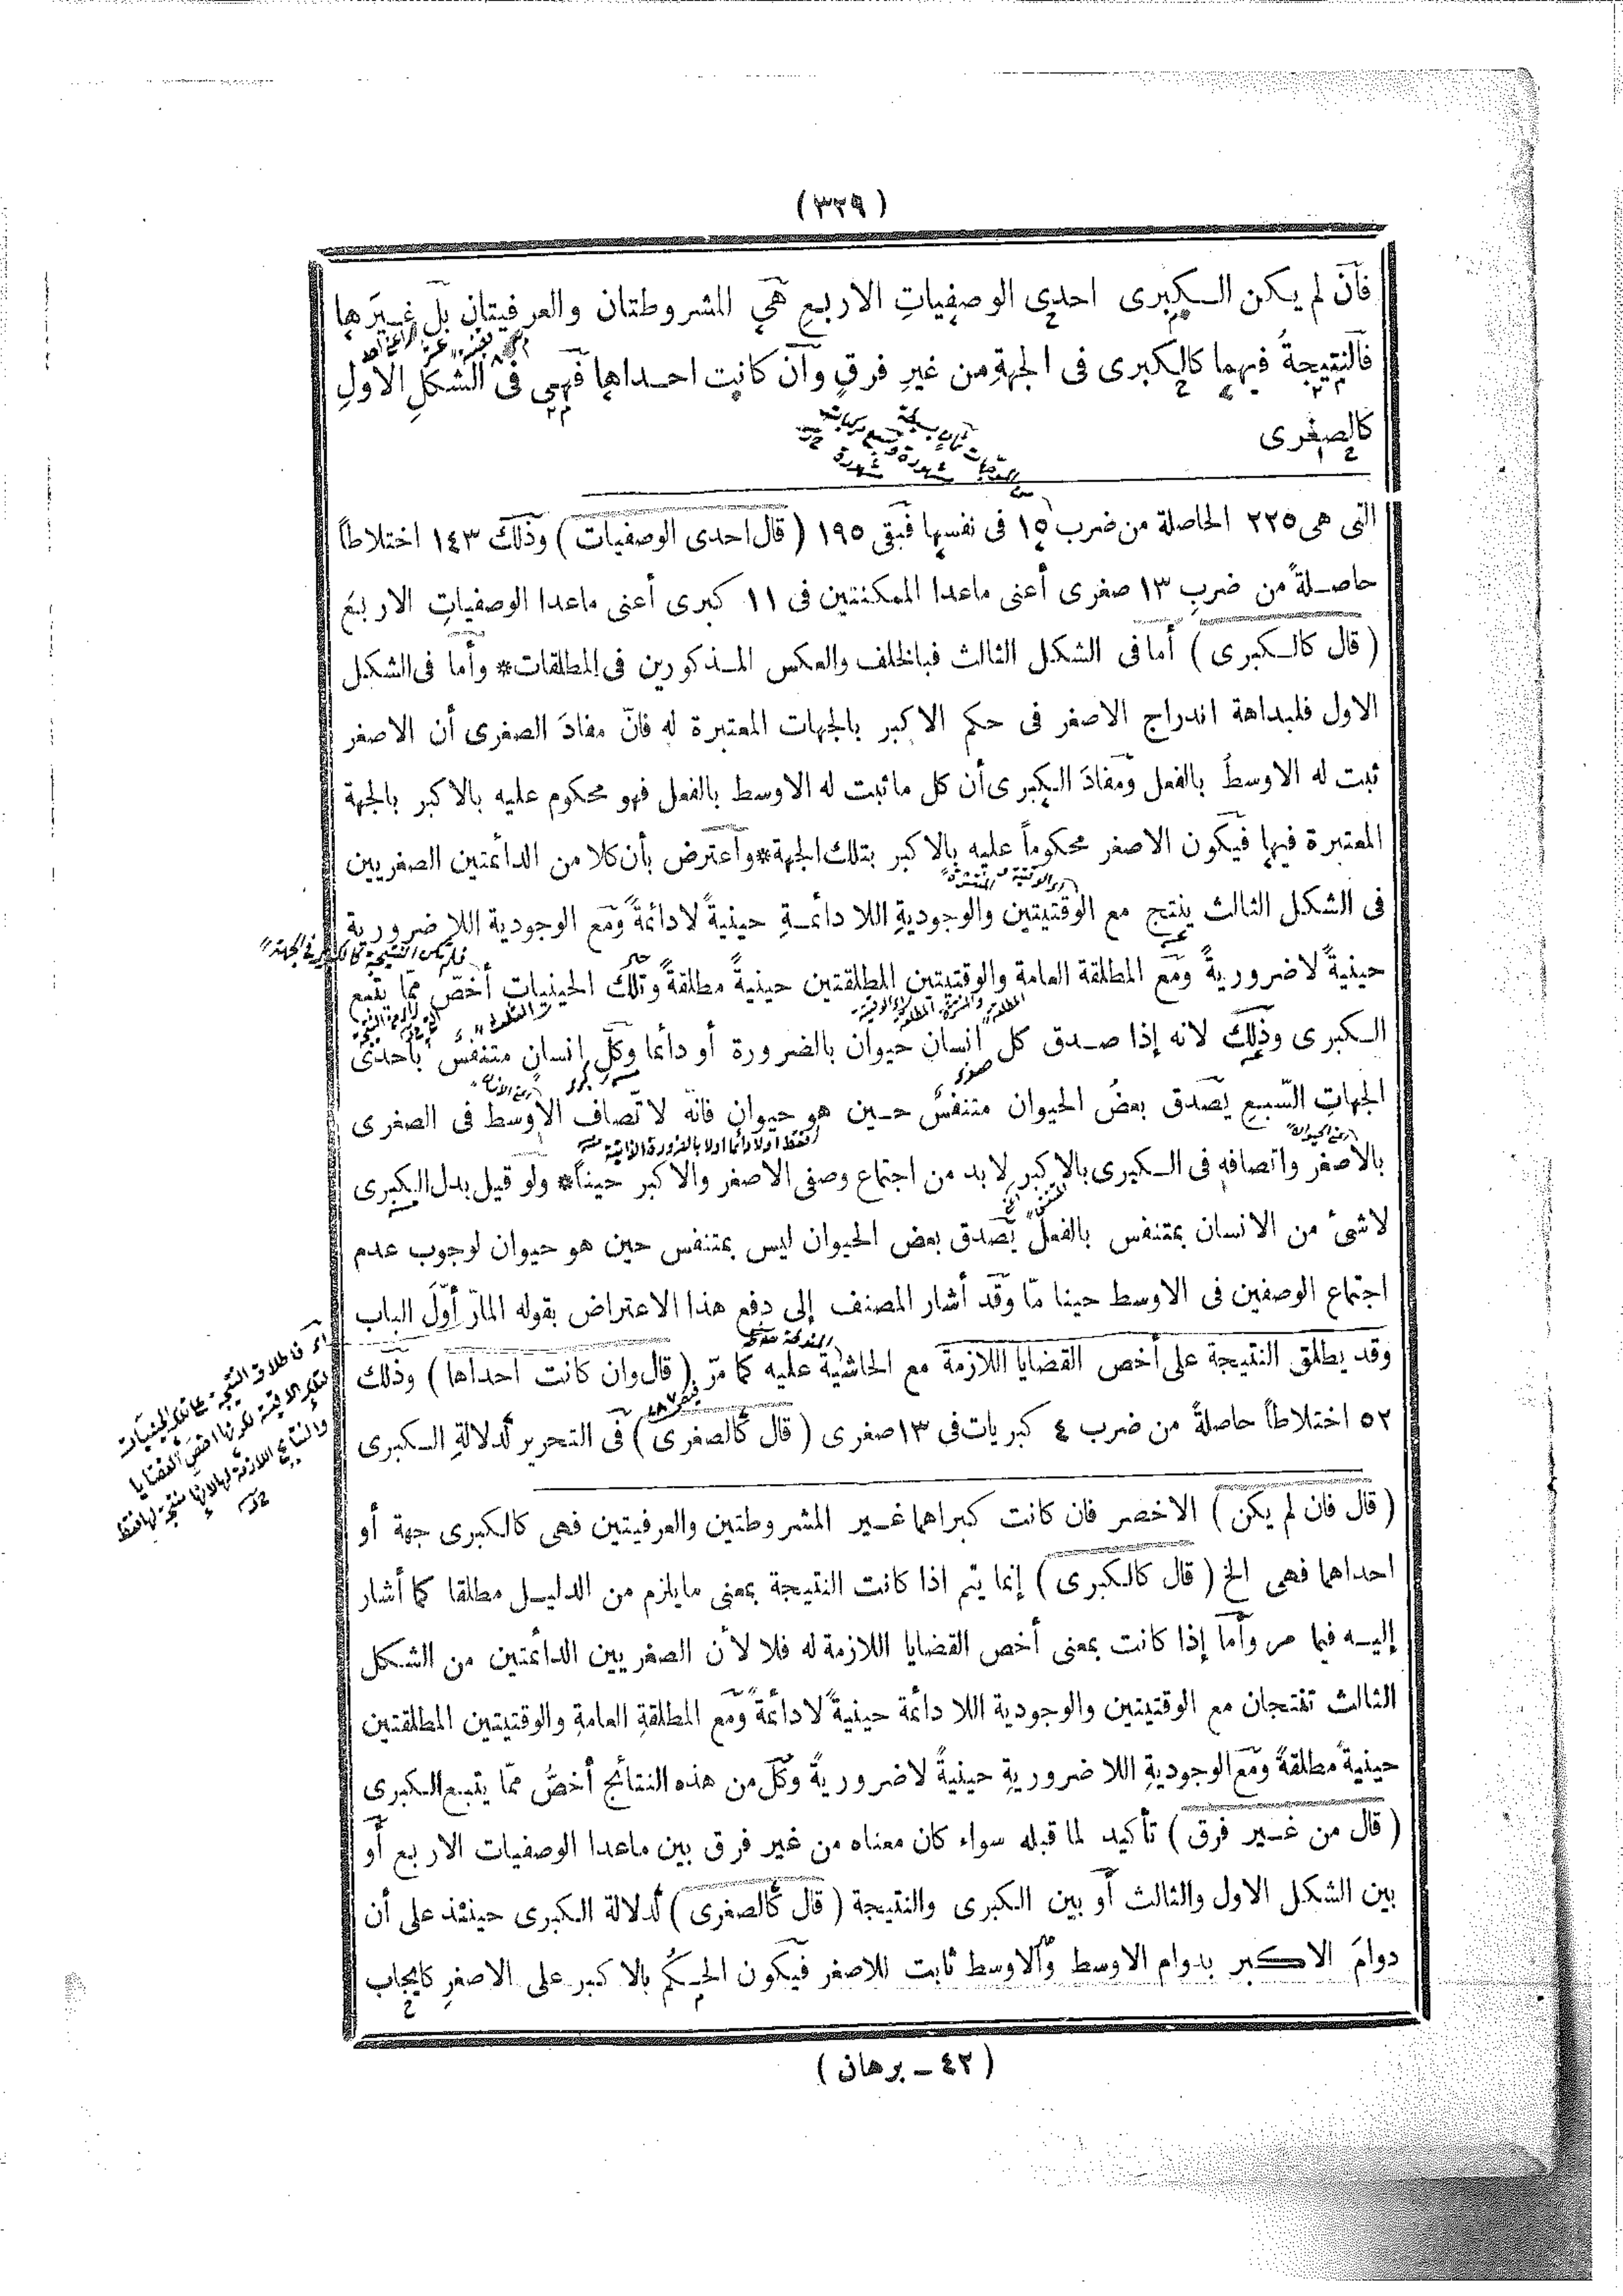 (٣٢٩)
فان لم يكن الكبرى احدى الوصفيات الاربع هي المشروطتان والعرفيتان بل غيرها
فالنتيجةُ فيهما كالكبرى فى الجهةِ من غيرِ فرقٍ وان كانت احداها فهى فى الشكلِ الاولِ
كالصغرى
التى هى ٢٢٥ الحاصلة من ضرب ١٥ فى نفسها فبقى ١٩٥ (قال احدى الوصفيات) وذلك ١٤٣ اختلاطاً
حاصلةً من ضربِ ١٣ صغرى أعنى ماعدا الممكنتين فى ١١ كبرى أعنى ماعدا الوصفياتِ الاربعَ
(قال كالكبرى) أما فى الشكل الثالث فبالخلف والعكس المذكورين فى المطلقات* وأما فى الشكل
الاول فلبداهة اندراج الاصغر فى حكم الاكبر بالجهات المعتبرة له فانّ مفادَ الصغرى أن الاصغر
ثبت له الاوسطُ بالفعل ومفادَ الكبرى أن كل ماثبت له الاوسط بالفعل فهو محكوم عليه بالاكبر بالجهة
المعتبرة فيها فيكون الاصغر محكوماً عليه بالاكبر بتلك الجهة* واعترض بأن كلا من الدائمتين الصغريين
فى الشكل الثالث ينتج مع الوقتيتين والوجوديةِ اللا دائمةِ حينيةً لادائمةً ومع الوجودية اللا ضرورية
حينيةً لاضروريةً ومع المطلقة العامة والوقتيتين المطلقتين حينيةً مطلقةً وتلك الحينيات أخصّ ممّا يتبع
الكبرى وذلك لانه إذا صدق كل انسان حيوان بالضرورة أو دائما وكل انسان متنفسٌ بأحدى
الجهاتِ السّبعِ يصدق بعضُ الحيوان متنفسٌ حين هو حيوان فانه لاتّصاف الاوسط فى الصغرى
بالاصغر واتصافه فى الكبرى بالاكبر لابد من اجتماع وصفى الاصغر والاكبر حيناً* ولو قيل بدل الكبرى
لاشئ من الانسان بمتنفس بالفعل يصدق بعض الحيوان ليس بمتنفس حين هو حيوان لوجوب عدم
اجتماع الوصفين فى الاوسط حينا مّا وقد أشار المصنف إلى دفع هذا الاعتراض بقوله المارّ أوّلَ الباب
وقد يطلق النتيجة على أخص القضايا اللازمة مع الحاشية عليه كما مرّ (قال وان كانت احداها) وذلك
٥٢ اختلاطاً حاصلةً من ضرب ٤ كبريات فى ١٣ صغرى (قال كالصغرى) فى التحرير لدلالةِ الكبرى
(قال فان لم يكن) الاخصر فان كانت كبراهما غير المشروطتين والعرفيتين فهى كالكبرى جهة أو
احداهما فهى الخ (قال كالكبرى) إنما يتم اذا كانت النتيجة بمعنى مايلزم من الدليل مطلقا كما أشار
إليه فيما مر وأما إذا كانت بمعنى أخص القضايا اللازمة له فلا لأن الصغريين الدائمتين من الشكل
الثالث تنتجان مع الوقتيتين والوجودية اللا دائمة حينيةً لادائمةً ومع المطلقةِ العامةِ والوقتيتين المطلقتين
حينيةً مطلقةً ومع الوجوديةِ اللا ضروريةِ حينيةً لاضروريةً وكلّ من هذه النتائج أخصُّ ممّا يتبع الكبرى
(قال من غير فرق) تأكيد لما قبله سواء كان معناه من غير فرق بين ماعدا الوصفيات الاربع أو
بين الشكل الاول والثالث أو بين الكبرى والنتيجة (قال كالصغرى) لدلالة الكبرى حينئذ على أن
دوامَ الاكبر بدوام الاوسط والاوسط ثابت للاصغر فيكون الحكمُ بالاكبر على الاصغرِ كايجاب
(٤٢ ـ برهان)